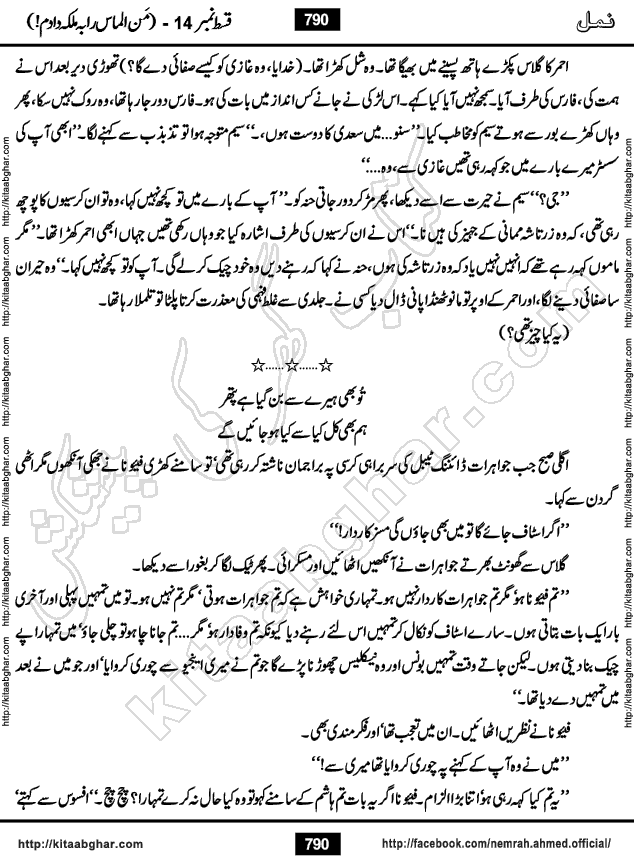 نمل
790
قسط نمبر 14 - (مَن الماس را بہ ملکہ دادم!)
احمر کا گلاس پکڑے ہاتھ پسینے میں بھیگا تھا۔ وہ شل کھڑا تھا۔ (خدایا، وہ غازی کو کیسے صفائی دے گا؟) تھوڑی دیر بعد اس نے
ہمت کی، فارس کی طرف آیا۔ سمجھ نہیں آیا کیا کہے۔ اس لڑکی نے جانے کس انداز میں بات کی ہو۔ فارس دور جا رہا تھا، وہ روک نہیں سکا، پھر
وہاں کھڑے بور سے ہوتے سیم کو مخاطب کیا۔ ”سنو... میں سعدی کا دوست ہوں،“ سیم متوجہ ہوا تو تذبذب سے کہنے لگا۔ ”ابھی آپ کی
سسٹر میرے بارے میں جو کہہ رہی تھیں غازی سے، وہ....“
”جی؟“ سیم نے حیرت سے اسے دیکھا، پھر مڑ کر دور جاتی حنہ کو۔ ”آپ کے بارے میں تو کچھ نہیں کہا، وہ تو ان کرسیوں کا پوچھ
رہی تھی، کہ وہ زرتاشہ ممانی کے جہیز کی ہیں نا۔“ اس نے ان کرسیوں کی طرف اشارہ کیا جو وہاں رکھی تھیں جہاں ابھی احمر کھڑا تھا۔ ”مگر
ماموں کہہ رہے تھے کہ انہیں نہیں یاد کہ وہ زرتاشہ کی ہوں، حنہ نے کہا کہ رہنے دیں وہ خود چیک کر لے گی۔ آپ کو تو کچھ نہیں کہا۔“ وہ حیران
سا صفائی دینے لگا، اور احمر کے اوپر تو مانو ٹھنڈا پانی ڈال دیا کسی نے۔ جلدی سے غلط فہمی کی معذرت کرتا پلٹا تو تلملا رہا تھا۔
(یہ کیا چیز تھی؟)
☆......☆......☆
تُو بھی ہیرے سے بن گیا ہے پتھر
ہم بھی کل کیا سے کیا ہو جائیں گے
اگلی صبح جب جواہرات ڈائننگ ٹیبل کی سربراہی کرسی پہ براجمان ناشتہ کر رہی تھی، تو سامنے کھڑی فیئونا نے جھکی آنکھوں مگر اٹھی
گردن سے کہا۔
”اگر اسٹاف جائے گا تو میں بھی جاؤں گی مسز کاردار!“
گلاس سے گھونٹ بھرتے جواہرات نے آنکھیں اٹھائیں اور مسکرائی۔ پھر ٹیک لگا کر بغور اسے دیکھا۔
”تم فیئونا ہو، مگر تم جواہرات کاردار نہیں ہو۔ تمہاری خواہش ہے کہ تم جواہرات ہوتی، مگر تم نہیں ہو۔ تو میں تمہیں پہلی اور آخری
بار ایک بات بتاتی ہوں۔ سارے اسٹاف کو نکال کر تمہیں اس لئے رہنے دیا کیونکہ تم وفادار ہو، مگر.... تم جانا چاہو تو چلی جاؤ، میں تمہارا پے
چیک بنا دیتی ہوں۔ لیکن جاتے وقت تمہیں بونس اور وہ نیکلیس چھوڑنا پڑے گا جو تم نے میری اینجیو سے چوری کروایا، اور جو میں نے بعد
میں تمہیں دے دیا تھا۔“
فیئونا نے نظریں اٹھائیں۔ ان میں تعجب تھا، اور فکر مندی بھی۔
”میں نے وہ آپ کے کہنے پہ چوری کروایا تھا میری سے!“
”یہ تم کیا کہہ رہی ہو، اتنا بڑا الزام۔ فیئونا اگر یہ بات تم ہاشم کے سامنے کہو تو وہ کیا حال نہ کرے تمہارا؟ چچ چچ۔“ افسوس سے کہتے،
http://kitaabghar.com
790
http://facebook.com/nemrah.ahmed.official/
http://kitaabghar.com
http://kitaabghar.com
http://kitaabghar.com
http://kitaabghar.com
http://kitaabghar.com
http://kitaabghar.com
http://kitaabghar.com
http://kitaabghar.com
کتاب گھر کی پیشکش
kitaabghar.com